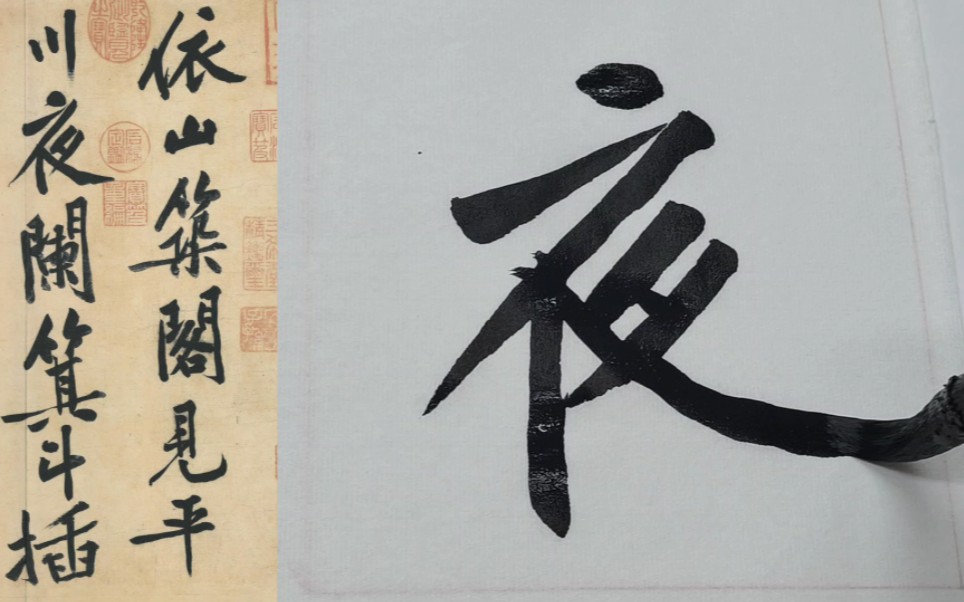 依山築閣見平
川夜闌箕斗插
夜